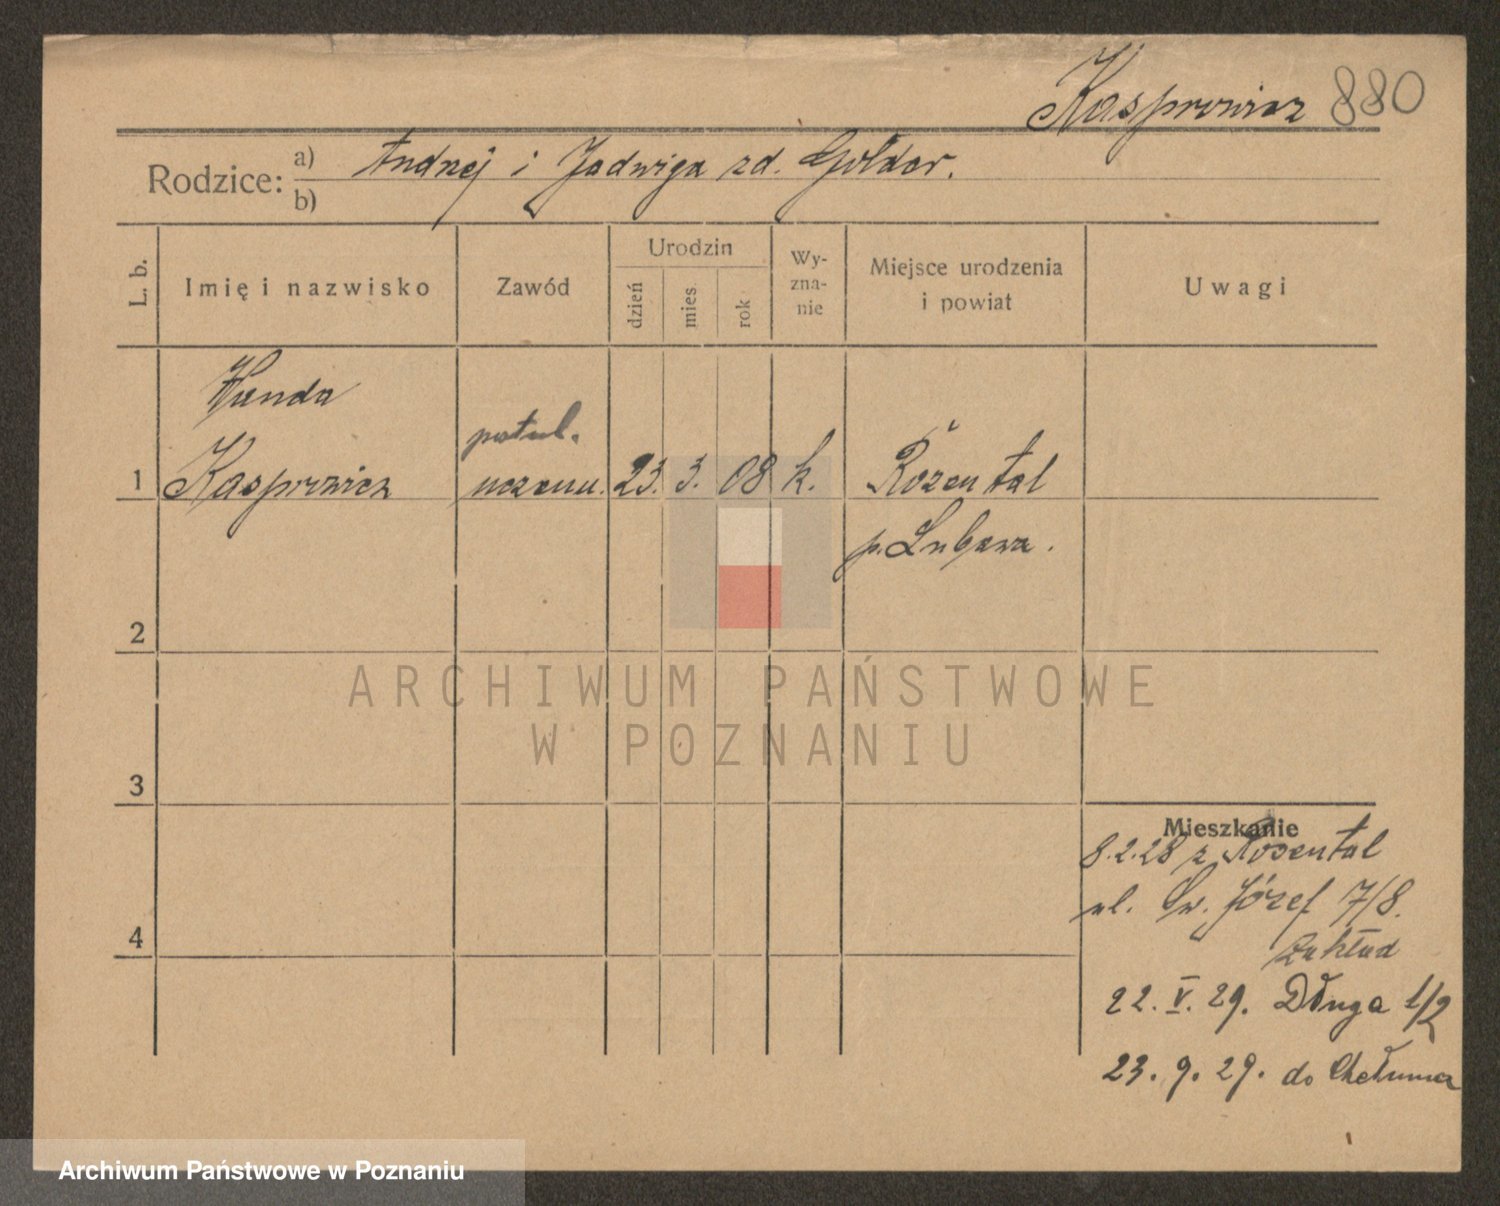 Kasprowicz 880
Rodzice: a) Andrzej i Jadwiga zd. Golder.
b)
L. b.
Imię i nazwisko
Zawód
Urodzin
dzień
mies.
rok
Wy-
zna-
nie
Miejsce urodzenia
i powiat
Uwagi
Wanda
położ.
1 Kasprowicz uczenn. 23. 3. 08 k. Rozental
p. Lubawa.
2
ARCHIWUM PAŃSTWOWE
W POZNANIU
3
Mieszkanie
8.2.28 z Rozental
ul. Św. Józef 7/8.
zakład
4
22. V. 29. Długa 1/2
23. 9. 29. do Chełmna
Archiwum Państwowe w Poznaniu